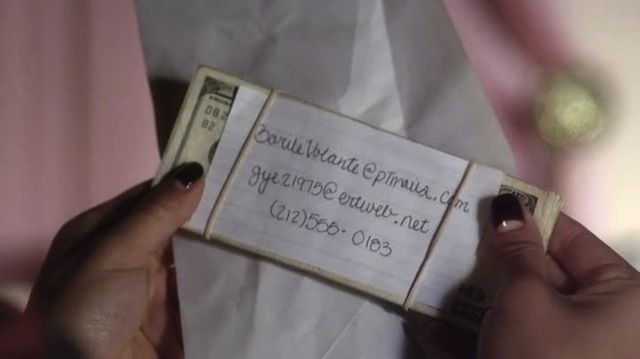 BarileVolante@ptmaila.com
gye21975@ertweb.net
(212)555-0183
DB2
B2